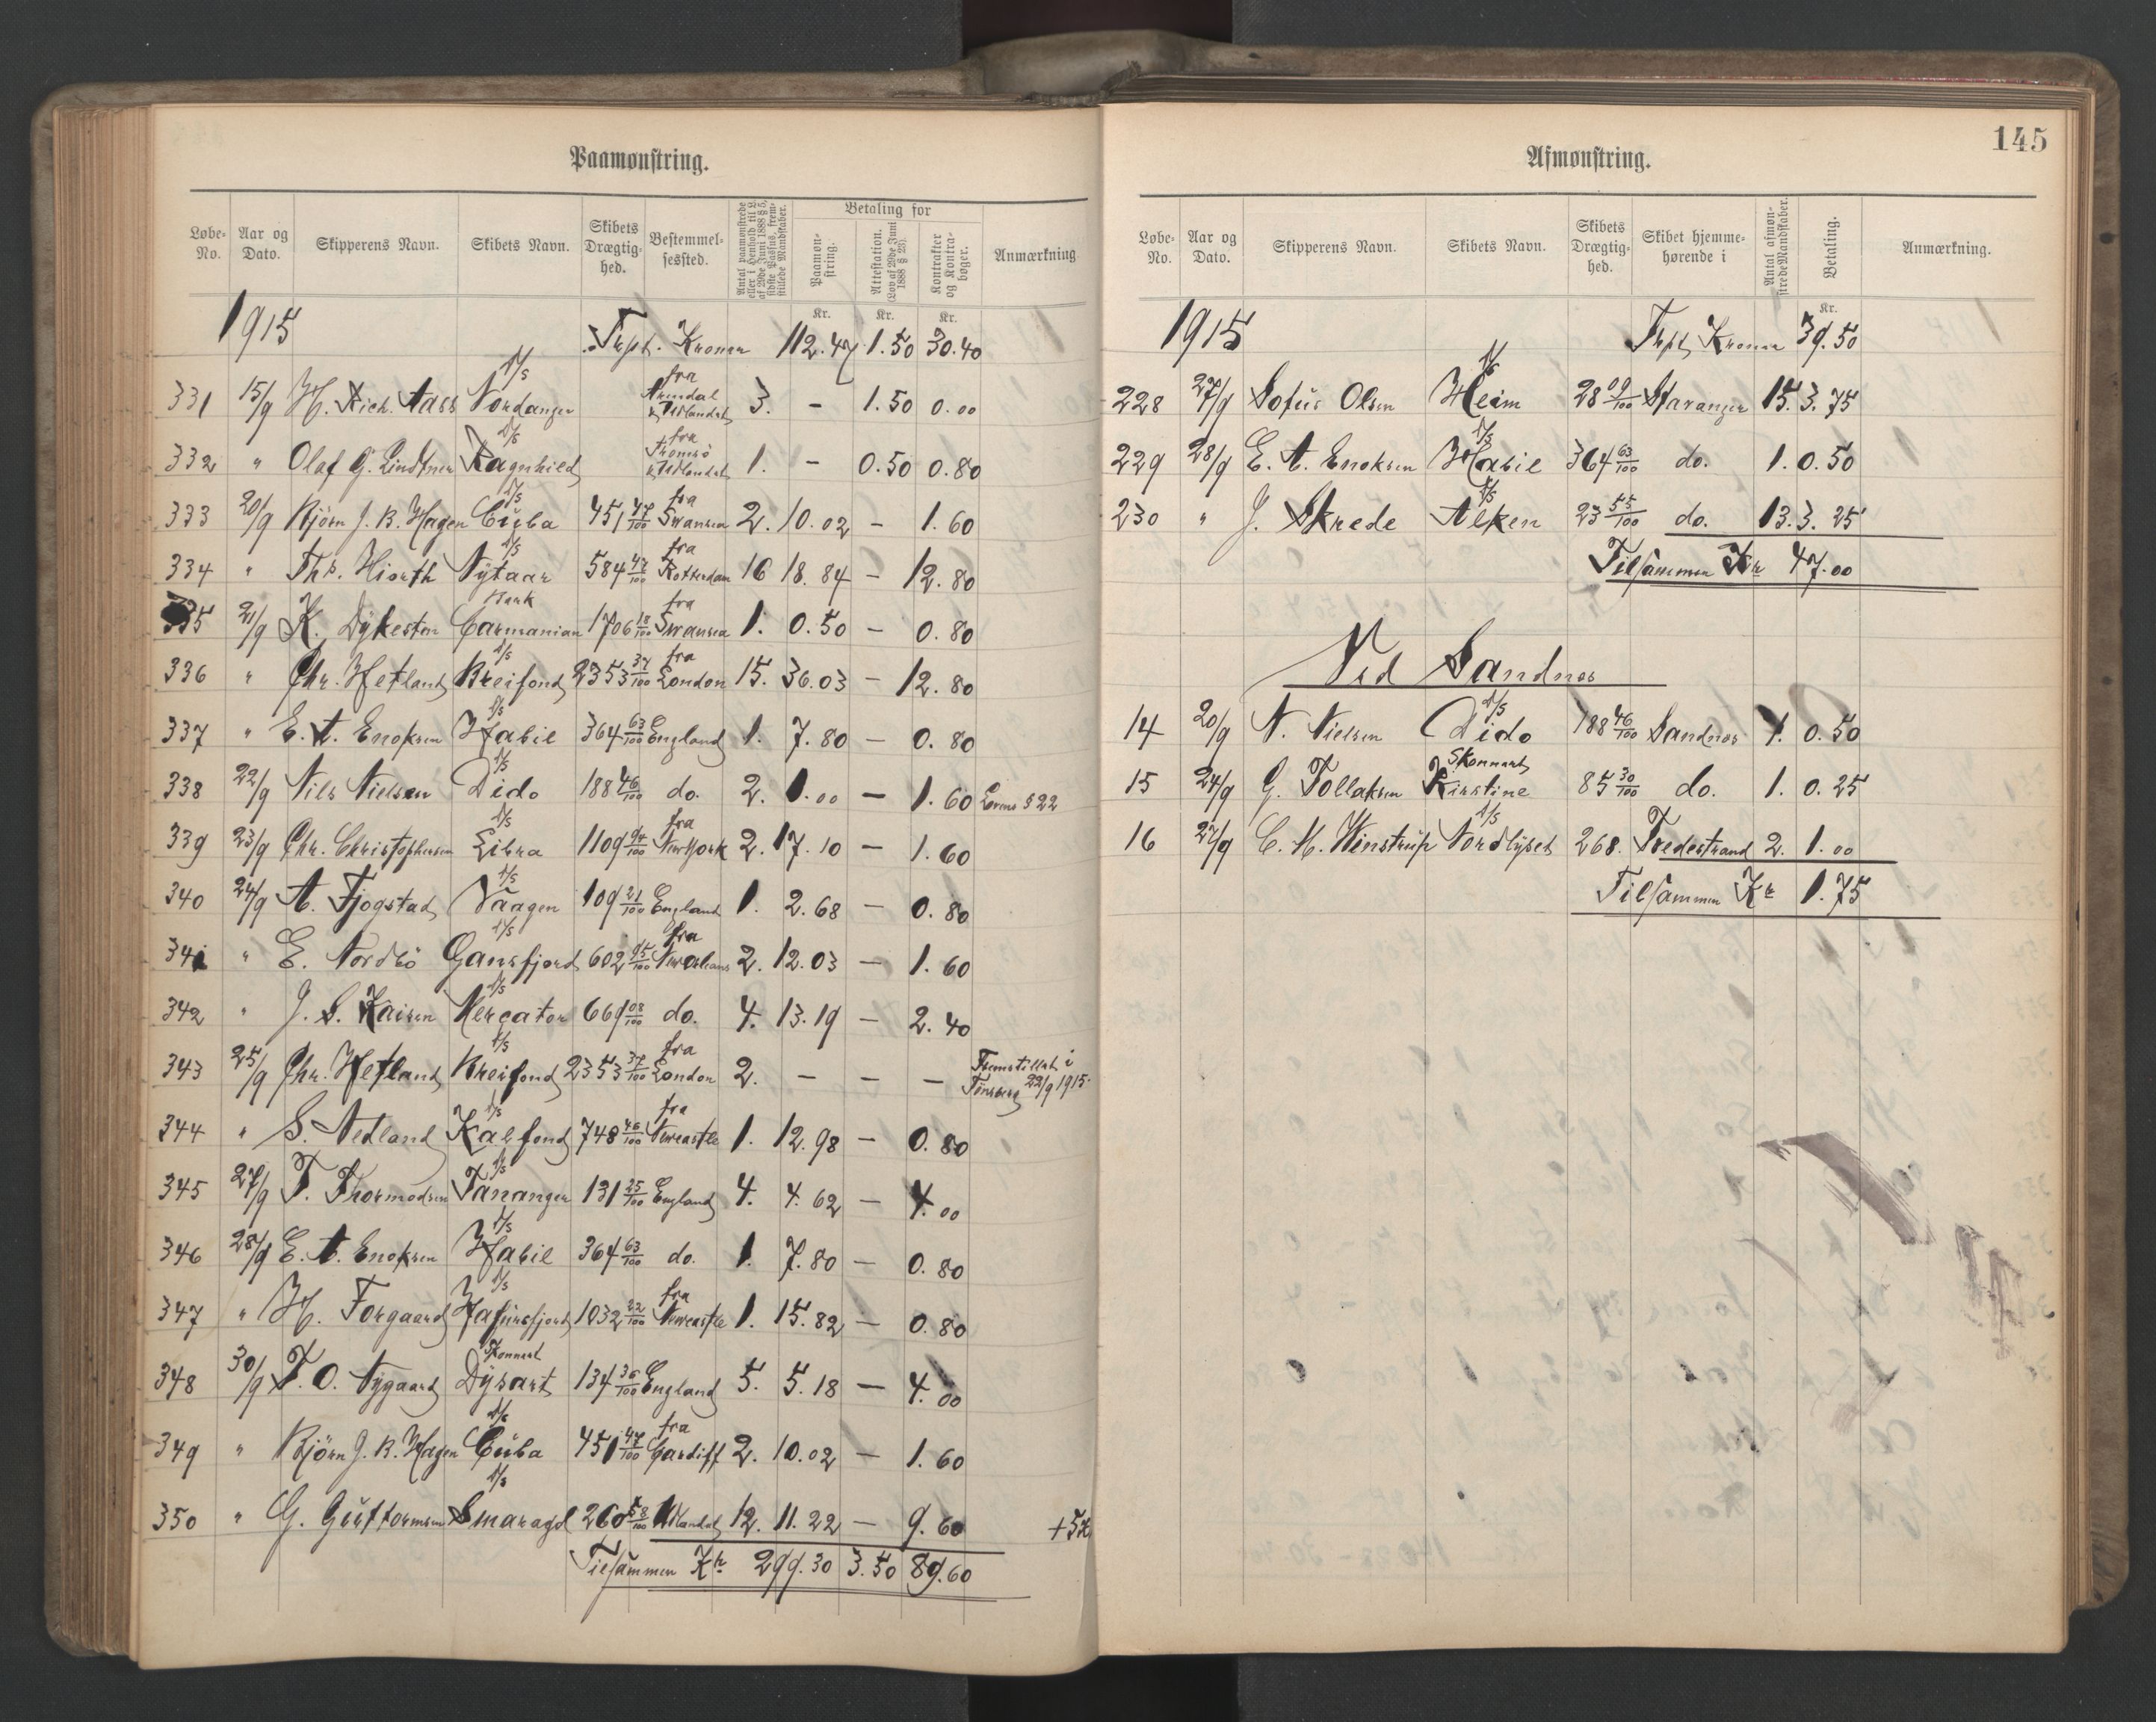 Paamønstring.
Løbe-No. Aar og Dato. Skipperens Navn. Skibets Navn. Skibets Drægtig-hed. Bestemmel-sessted. Antal paamønstrede eller i Henhold til L. af 29de Juni 1888 § 5, sidste Passus, frem-stillede Mandskaber. Betaling for Paamøn-string. Attestation. (Lov af 29de Juni 1888 § 23). Kontrakter og Kontra-bøger. Anmærkning
Kr. Kr. Kr.
1915 Trspt. Kroner 112.47 1.50 30.40
331 15/9 H. Rich. Aass D/s Nordanger fra Arendal t. Udlandet 3. - 1.50 0.00
332 " Olaf G. Lindtner D/s Ragnhild fra Tromsö t. Udlandet 1. - 0.50 0.80
333 20/9 Björn J. B. Hagen D/s Cuba 451 47/100 fra Swansea 2. 10.02 - 1.60
334 " Ths. Hiorth D/s Nytaar 584 47/100 fra Rotterdam 16 18.84 - 12.80
335 21/9 K. Dykesten Bark Carmanian 1706 18/100 fra Swansea 1. 0.50 - 0.80
336 " Chr. Hetland D/s Breifond 2353 37/100 fra London 15. 36.03 - 12.80
337 " E. A. Enoksen D/s Habil 364 63/100 England 1. 7.80 - 0.80
338 22/9 Nils Nielsen D/s Dido 188 46/100 do. 2. 1.00 - 1.60 Lovens § 22
339 23/9 Chr. Christophersen D/s Libra 1109 94/100 fra New York 2. 17.10 - 1.60
340 24/9 A. Fjogstad D/s Vaagen 109 21/100 England 1. 2.68 - 0.80
341 " E. Nordbö D/s Gansfjord 602 95/100 fra New Orleans 2. 12.03 - 1.60
342 " J. S. Kaisen D/s Mercator 669 08/100 do. 4. 13.19 - 2.40
343 25/9 Chr. Hetland D/s Breifond 2353 37/100 fra London 2. - - - Fremstillet i Tönsberg 22/9 1915.
344 " S. Nedland D/s Kalfond 748 46/100 fra Newcastle 1. 12.98 - 0.80
345 27/9 T. Thormodsen D/s Tananger 131 25/100 England 4. 4.62 - 4.00
346 28/9 E. A. Enoksen D/s Habil 364 63/100 do. 1. 7.80 - 0.80
347 " H. Torgaard D/s Hafursfjord 1032 22/100 fra Newcastle 1. 15.82 - 0.80
348 30/9 T. O. Nygaard Skonnert Dysart 134 36/100 England 5. 5.18 - 4.00
349 " Björn J. B. Hagen D/s Cuba 451 47/100 fra Cardiff 2. 10.02 - 1.60
350 " G. Guttormsen D/s Smaragd 260 58/100 Udlandet 12. 11.22 - 9.60
Tilsammen Kr 299.30 3.50 89.60
145
Afmønstring.
Løbe-No. Aar og Dato. Skipperens Navn. Skibets Navn. Skibets Drægtig-hed. Skibet hjemme-hørende i Antal afmøn-strede Mandskaber. Betaling. Anmærkning.
Kr.
1915 Trspt Kroner 39.50
228 27/9 Sofus Olsen D/s Heim 28 09/100 Stavanger 15. 3.75
229 28/9 E. A. Enoksen D/s Habil 364 63/100 do. 1. 0.50
230 " J. Skrede D/s Alken 23 55/100 do. 13. 3.25
Tilsammen Kr 47.00
Ved Sandnes
14 20/9 N. Nielsen D/s Dido 188 46/100 Sandnes 1. 0.50
15 24/9 G. Tollaksen Skonnert Kirstine 85 30/100 do. 1. 0.25
16 27/9 C. M. Winstrup D/s Nordlyset 268. Tvedestrand 2. 1.00
Tilsammen Kr 1.75